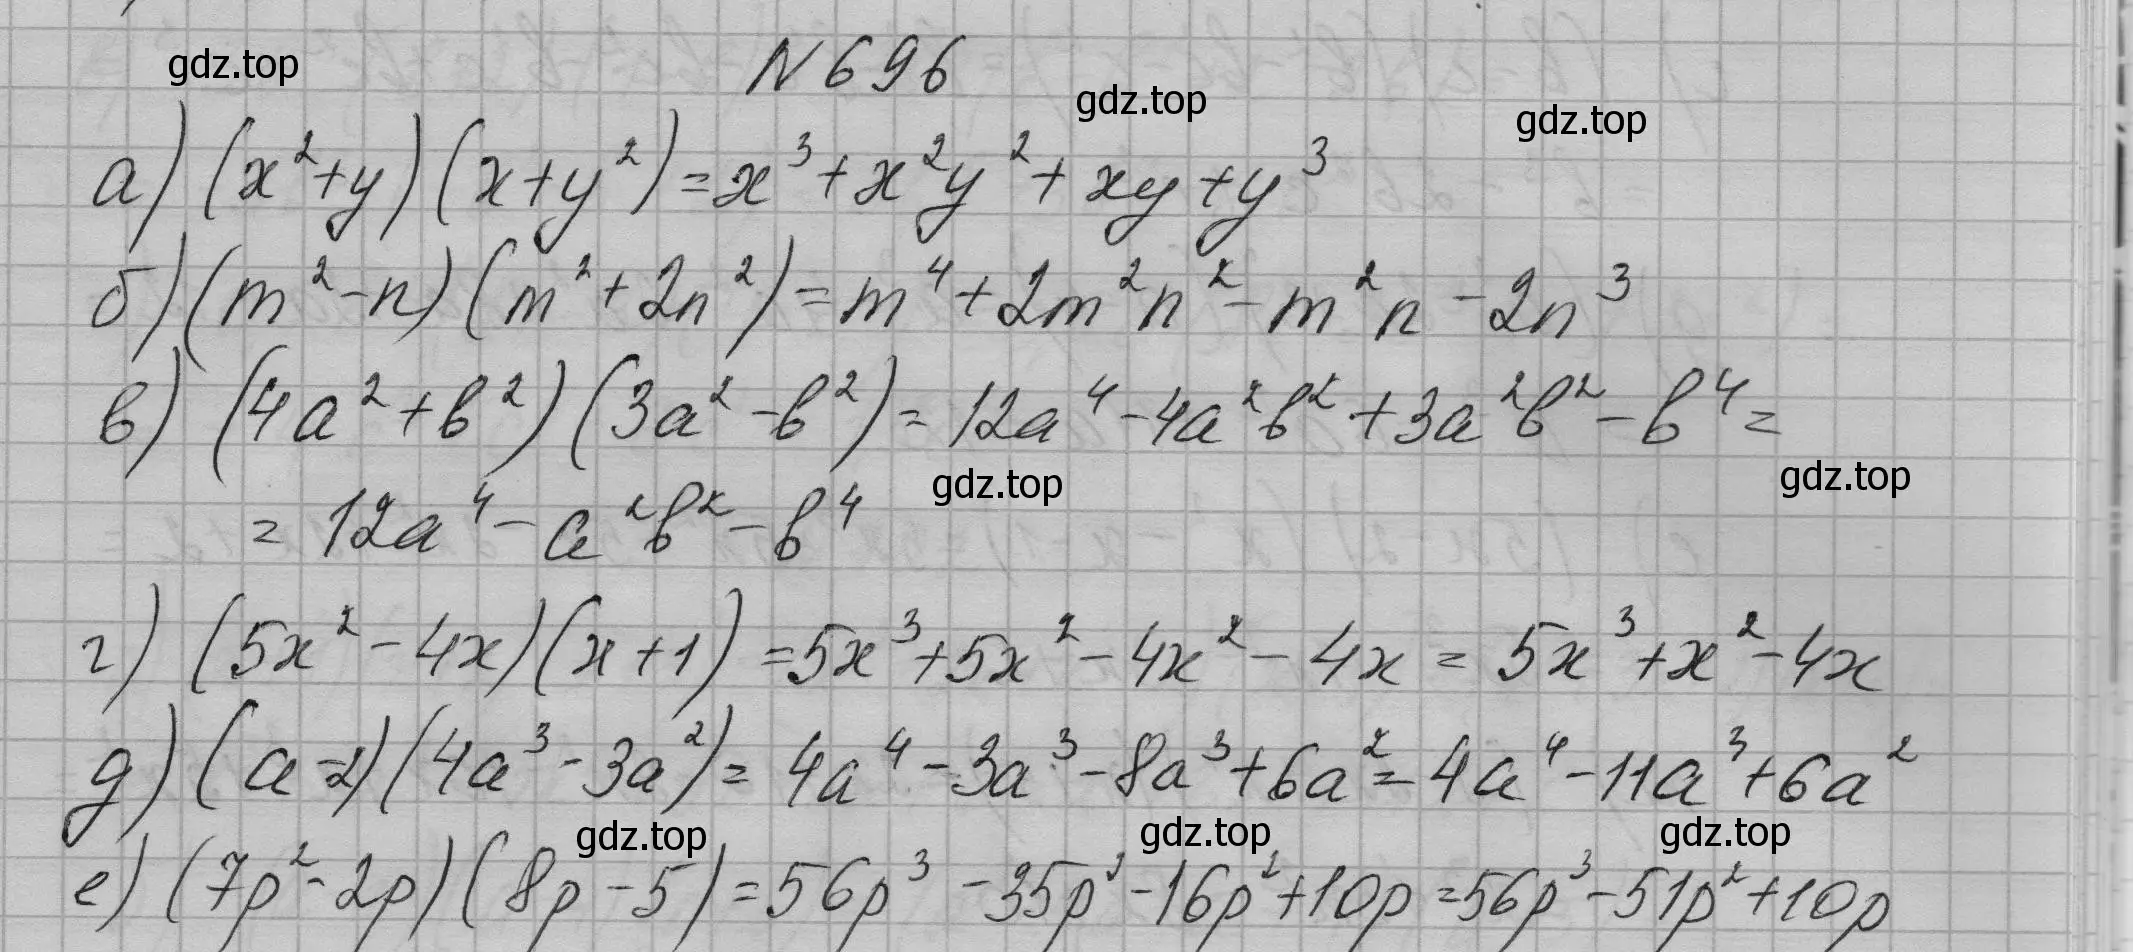 gdz.top
N 696
gdz.top
gdz.top
а) (x²+y)(x+y²)=x³+x²y²+xy+y³
б) (m²-n)(m²+2n²)=m⁴+2m²n²-m²n-2n³
в) (4a²+b²)(3a²-b²)=12a⁴-4a²b²+3a²b²-b⁴=
gdz.top
gdz.top
=12a⁴-a²b²-b⁴
г) (5x²-4x)(x+1)=5x³+5x²-4x²-4x=5x³+x²-4x
д) (a-2)(4a³-3a²)=4a⁴-3a³-8a³+6a²=4a⁴-11a³+6a²
gdz.top
gdz.top
gdz.top
е) (7p²-2p)(8p-5)=56p³-35p²-16p²+10p=56p³-51p²+10p